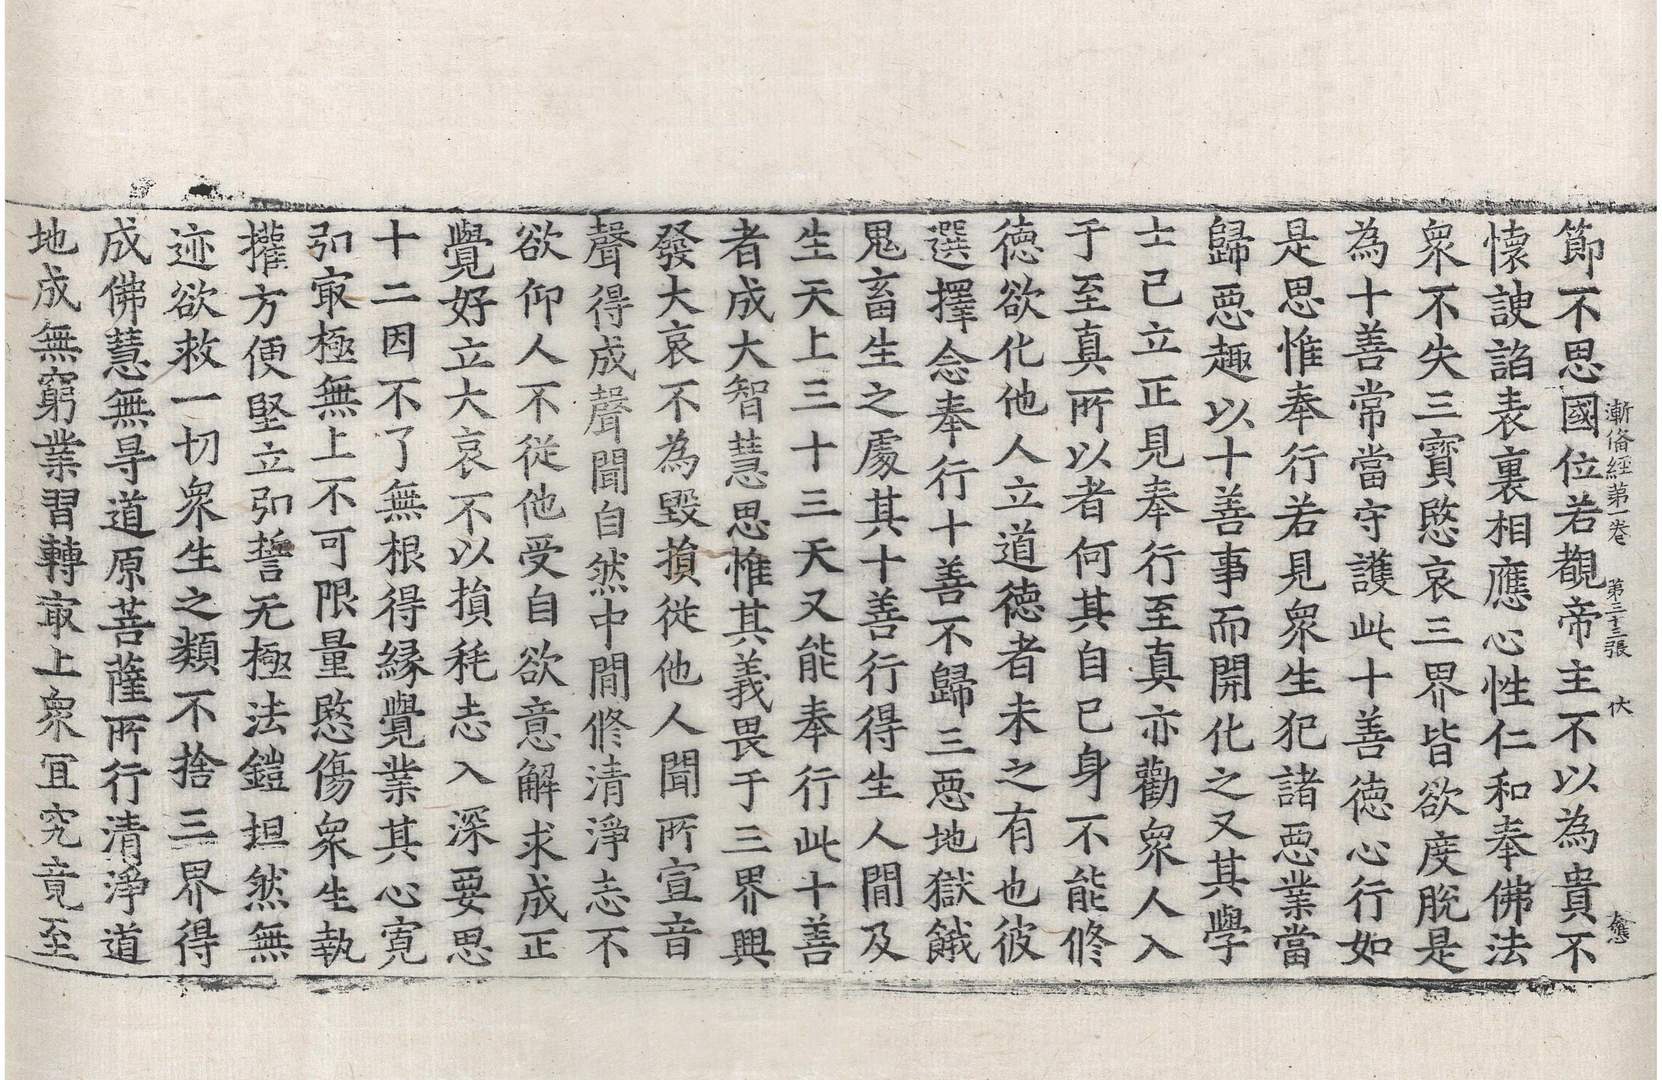 漸俻經第一卷 第三十三張 伏
節不思國位若覩帝主不以為貴不
懐諛諂表裏相應心性仁和奉佛法
衆不失三寳愍哀三界皆欲度脫是
為十善常當守護此十善德心行如
是思惟奉行若見衆生犯諸惡業當
歸惡趣以十善事而開化之又其學
士己立正見奉行至真亦勸衆人入
于至真所以者何其自已身不能修
德欲化他人立道德者未之有也彼
選擇念奉行十善不歸三惡地獄餓
鬼畜生之處其十善行得生人間及
生天上三十三天又能奉行此十善
者成大智慧思惟其義畏于三界興
發大哀不為毀損從他人聞所宣音
聲得成聲聞自然中間修清淨志不
欲仰人不從他受自欲意解求成正
覺好立大哀不以損秏志入深要思
十二因不了無根得緣覺業其心寛
弘㝡極無上不可限量愍傷衆生執
攉方便堅立弘誓无極法鎧坦然無
迹欲救一切衆生之類不捨三界得
成佛慧無㝵道原菩薩所行清淨道
地成無窮業習轉㝡上衆冝究竟至